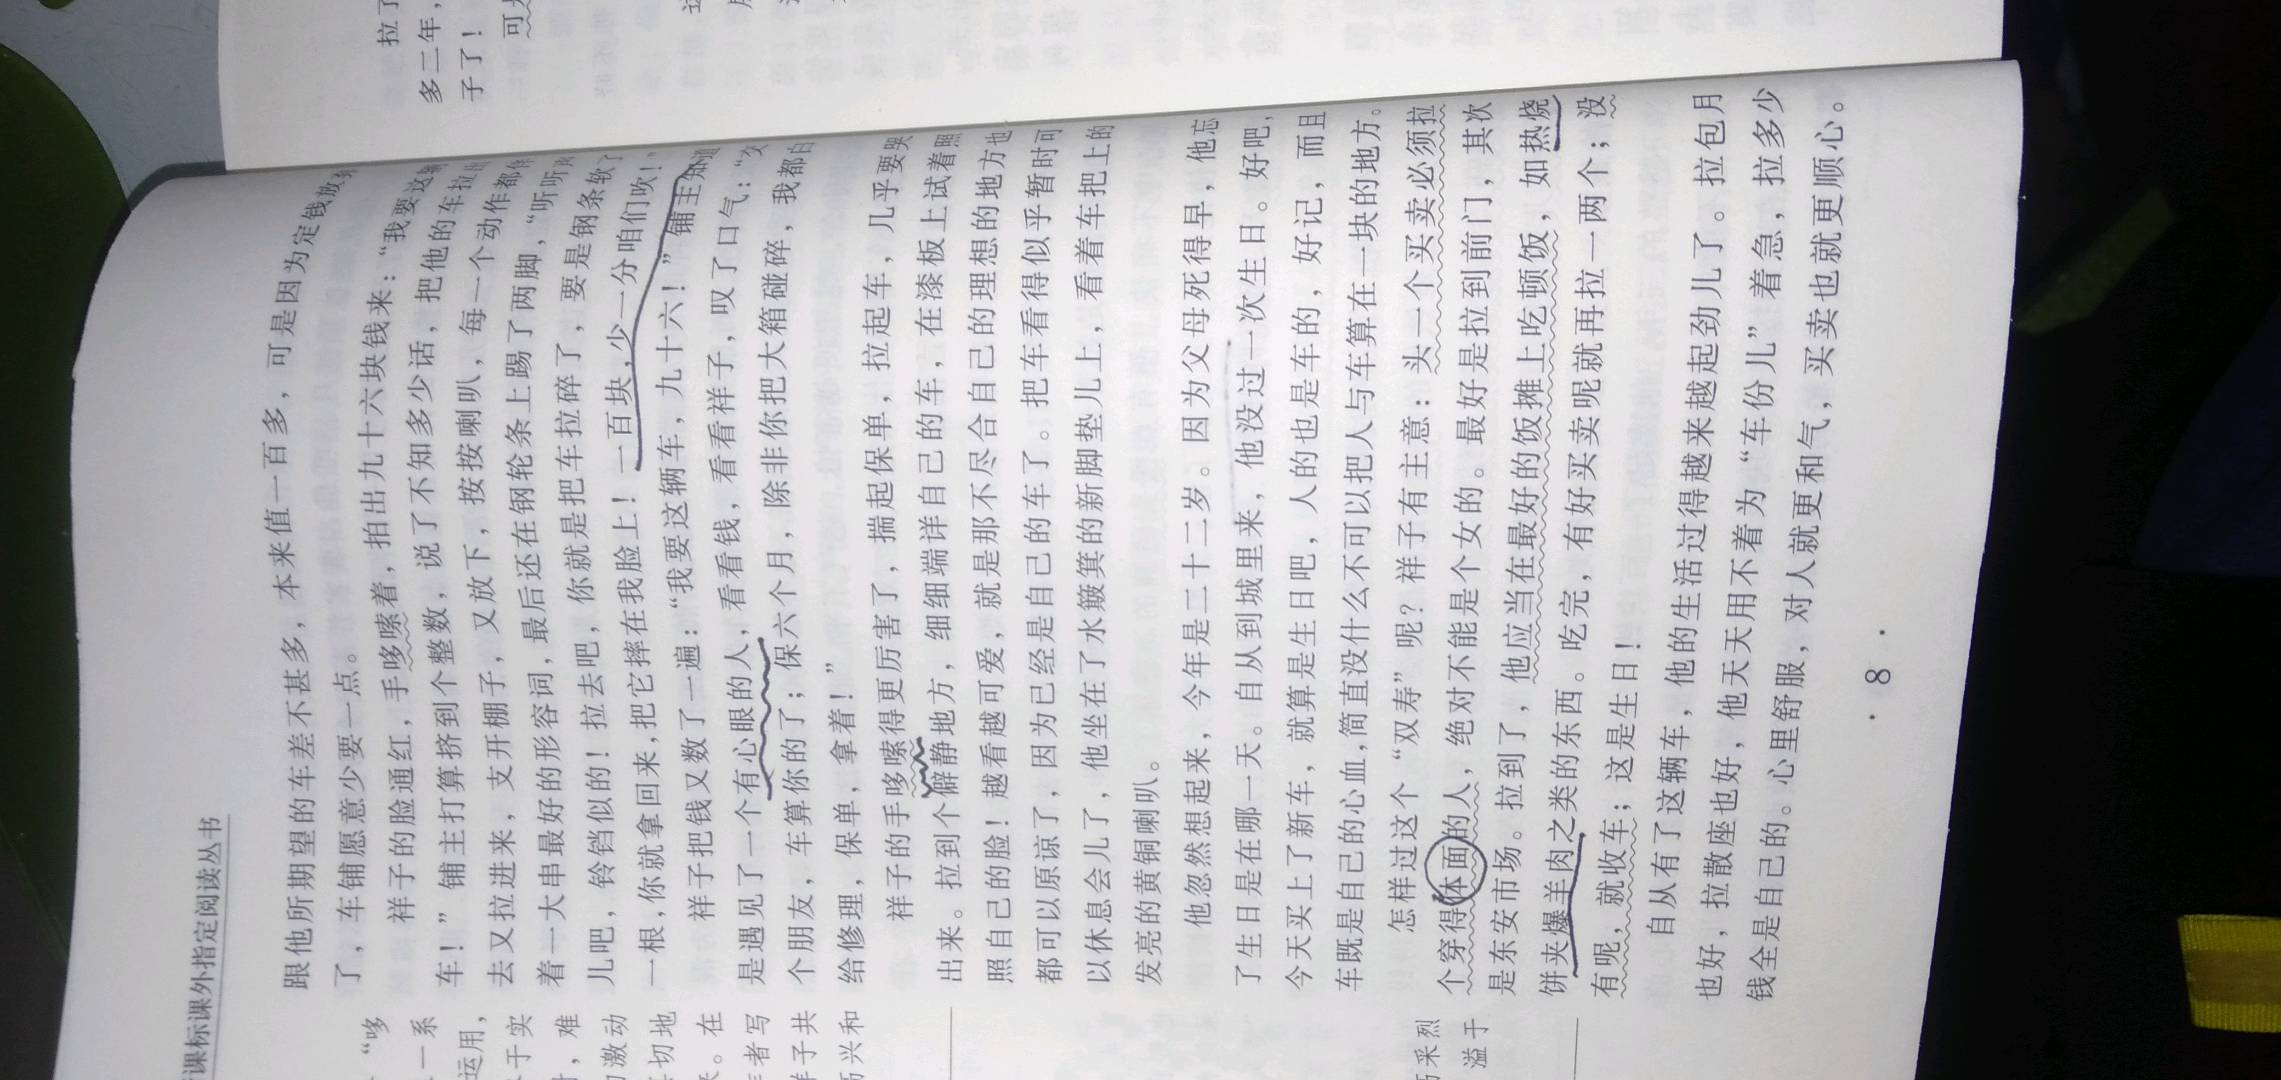 课标课外指定阅读丛书
跟他所期望的车差不甚多，本来值一百多，可是因为定钱
了，车铺愿意少要一点。
祥子的脸通红，手哆嗦着，拍出九十六块钱来：“我要这辆
车！”铺主打算挤到个整数，说了不知多少话，把他的车拉出
去又拉进来，支开棚子，又放下，按按喇叭，每一个动作都伴
着一大串最好的形容词，最后还在钢轮条上踢了两脚，“听听声
儿吧，铃铛似的！拉去吧，你就是把车拉碎了，要是钢条软了
一根，你就拿回来，把它摔在我脸上！一百块，少一分咱们吹！”
祥子把钱又数了一遍：“我要这辆车，九十六！”铺主知道
是遇见了一个有心眼的人，看看钱，看看祥子，叹了口气：“交
个朋友，车算你的了；保六个月，除非你把大箱碰碎，我都白
给修理，保单，拿着！”
祥子的手哆嗦得更厉害了，揣起保单，拉起车，几乎要哭
出来。拉到个僻静地方，细细端详自己的车，在漆板上试着照
照自己的脸！越看越可爱，就是那不尽合自己的理想的地方也
都可以原谅了，因为已经是自己的车了。把车看得似乎暂时可
以休息会儿了，他坐在了水簸箕的新脚垫儿上，看着车把上的
发亮的黄铜喇叭。
他忽然想起来，今年是二十二岁。因为父母死得早，他忘
了生日是在哪一天。自从到城里来，他没过一次生日。好吧，
今天买上了新车，就算是生日吧，人的也是车的，好记，而且
车既是自己的心血，简直没什么不可以把人与车算在一块的地方。
怎样过这个“双寿”呢？祥子有主意：头一个买卖必须拉
个穿得体面的人，绝对不能是个女的。最好是拉到前门，其次
是东安市场。拉到了，他应当在最好的饭摊上吃顿饭，如热烧
饼夹爆羊肉之类的东西。吃完，有好买卖呢就再拉一两个；没
有呢，就收车；这是生日！
自从有了这辆车，他的生活过得越来越起劲儿了。拉包月
也好，拉散座也好，他天天用不着为“车份儿”着急，拉多少
钱全是自己的。心里舒服，对人就更和气，买卖也就更顺心。
·8·
“哆
一系
运用，
于实
，难
激动
切地
。在
者写
子共
兴和
采烈
溢于
拉了
多二年，
子了！
可